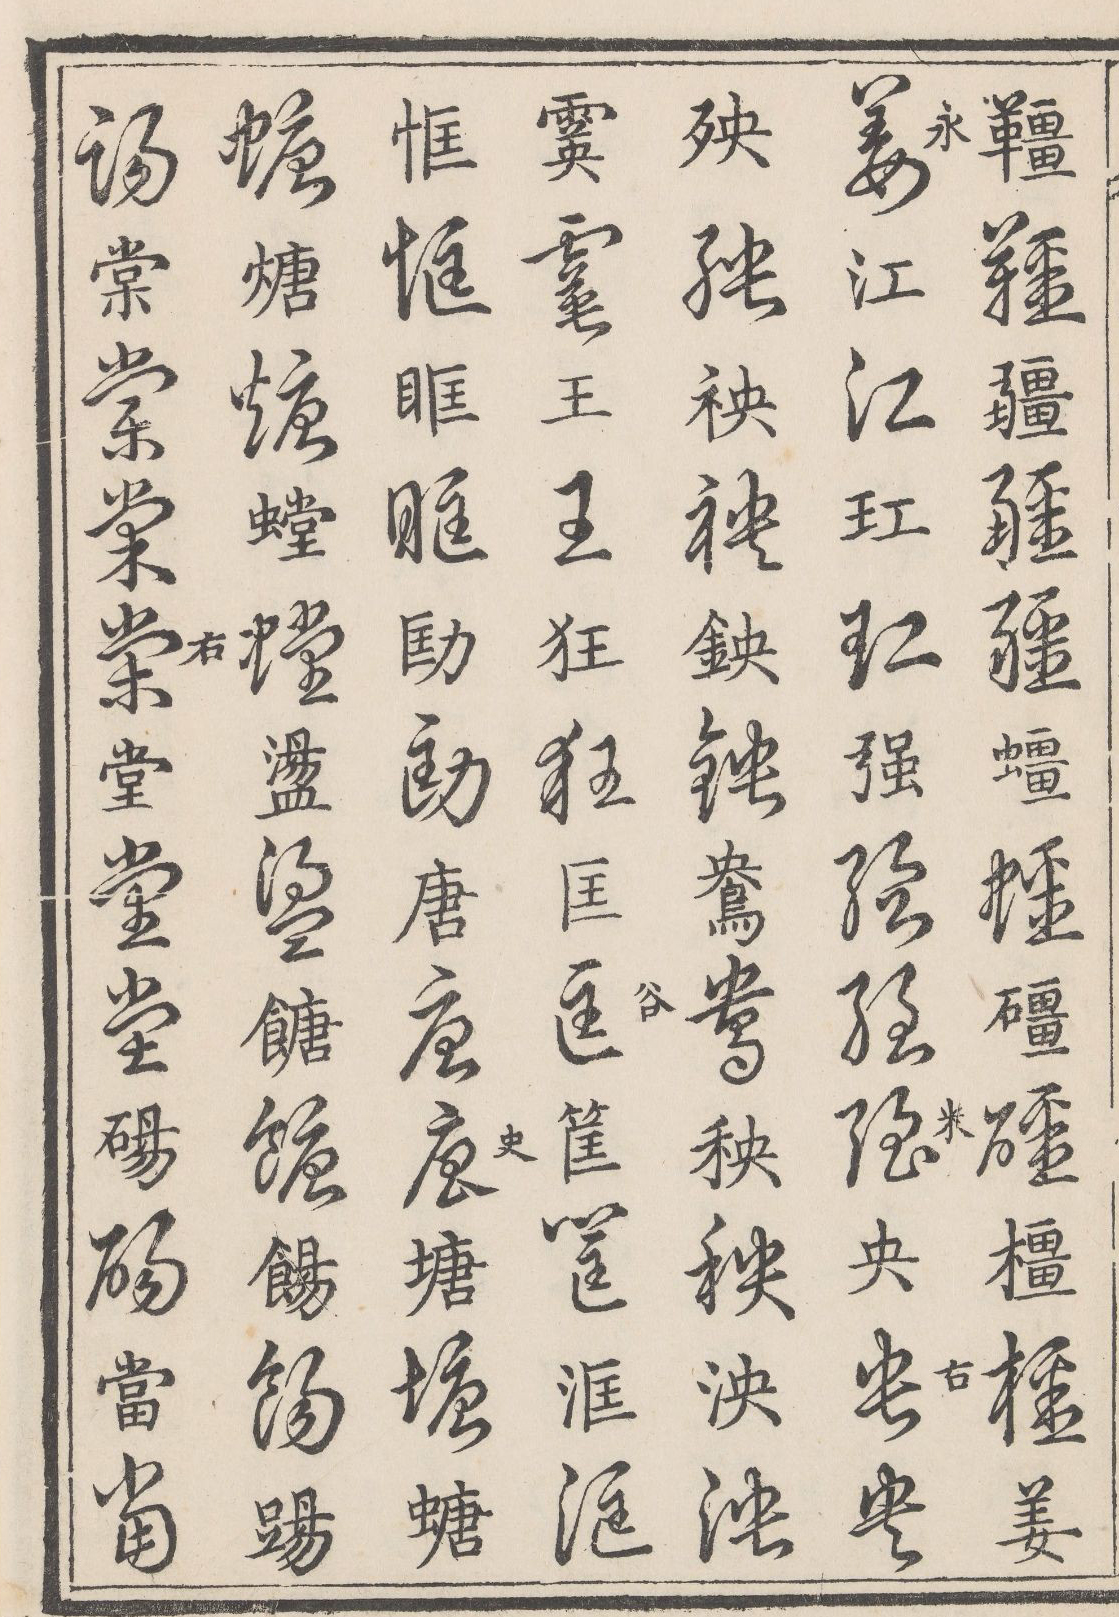 韁韁疆疆疆礓礓橿橿姜
永
米
右
姜江江玒玒强强强强央央央
殃殃鉠鉠鴦鴦秧秧泱泱
谷
霙霙王王狂狂匡匡筐筐洭洭
史
恇恇眶眶劻劻唐唐唐塘塘螗
螗煻煻螳螳盪盪餹餹餳餳踼
右
踼棠棠棠棠堂堂堂碭碭當當